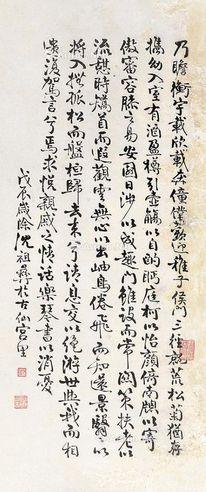 乃瞻衡宇載欣載奔僮僕歡迎稚子候門三徑就荒松菊猶存
攜幼入室有酒盈樽引壺觴以自酌眄庭柯以怡顏倚南窗以寄
傲審容膝之易安園日涉以成趣門雖設而常關策扶老以
流憩時矯首而遐觀雲無心以出岫鳥倦飛而知還景翳翳以
將入撫孤松而盤桓歸去來兮請息交以絕游世與我而相
遺復駕言兮焉求悅親戚之情話樂琴書以消憂
戊辰歲除沈祖於古仙宮里